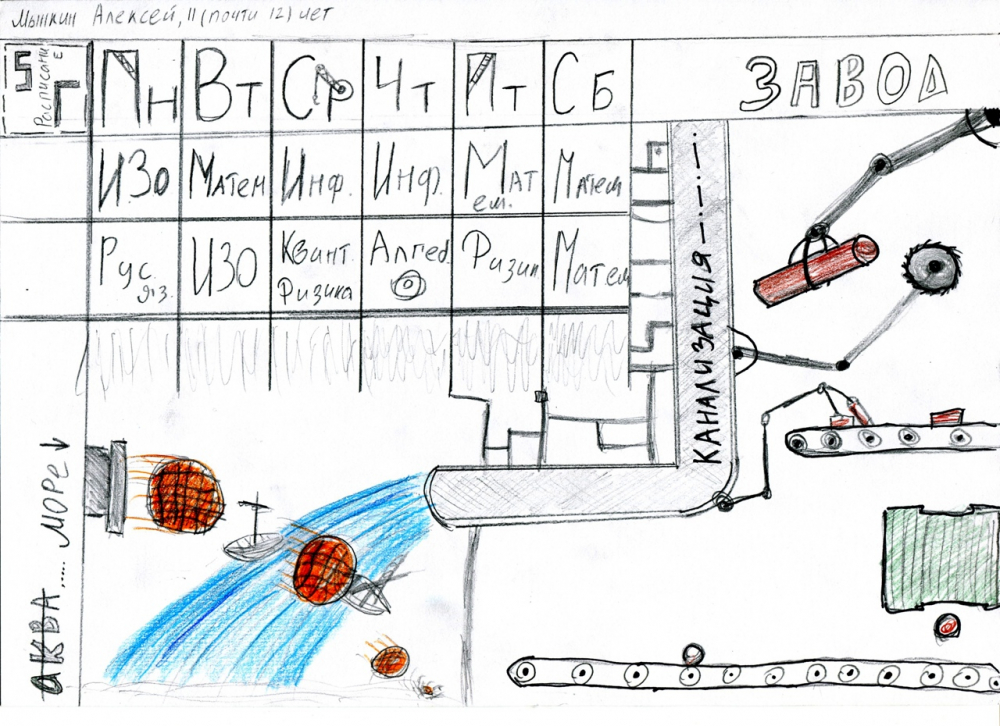 Мышкин Алексей, 11 (почти 12) лет
5Г Расписание Пн Вт Ср Чт Пт Сб ЗАВОД
ИЗО Матем Инф. Инф. Матем. Матем
Рус. яз. ИЗО Квант. Физика Алгеб Физик Матем
КАНАЛИЗАЦИЯ
АКВА..... МОРЕ